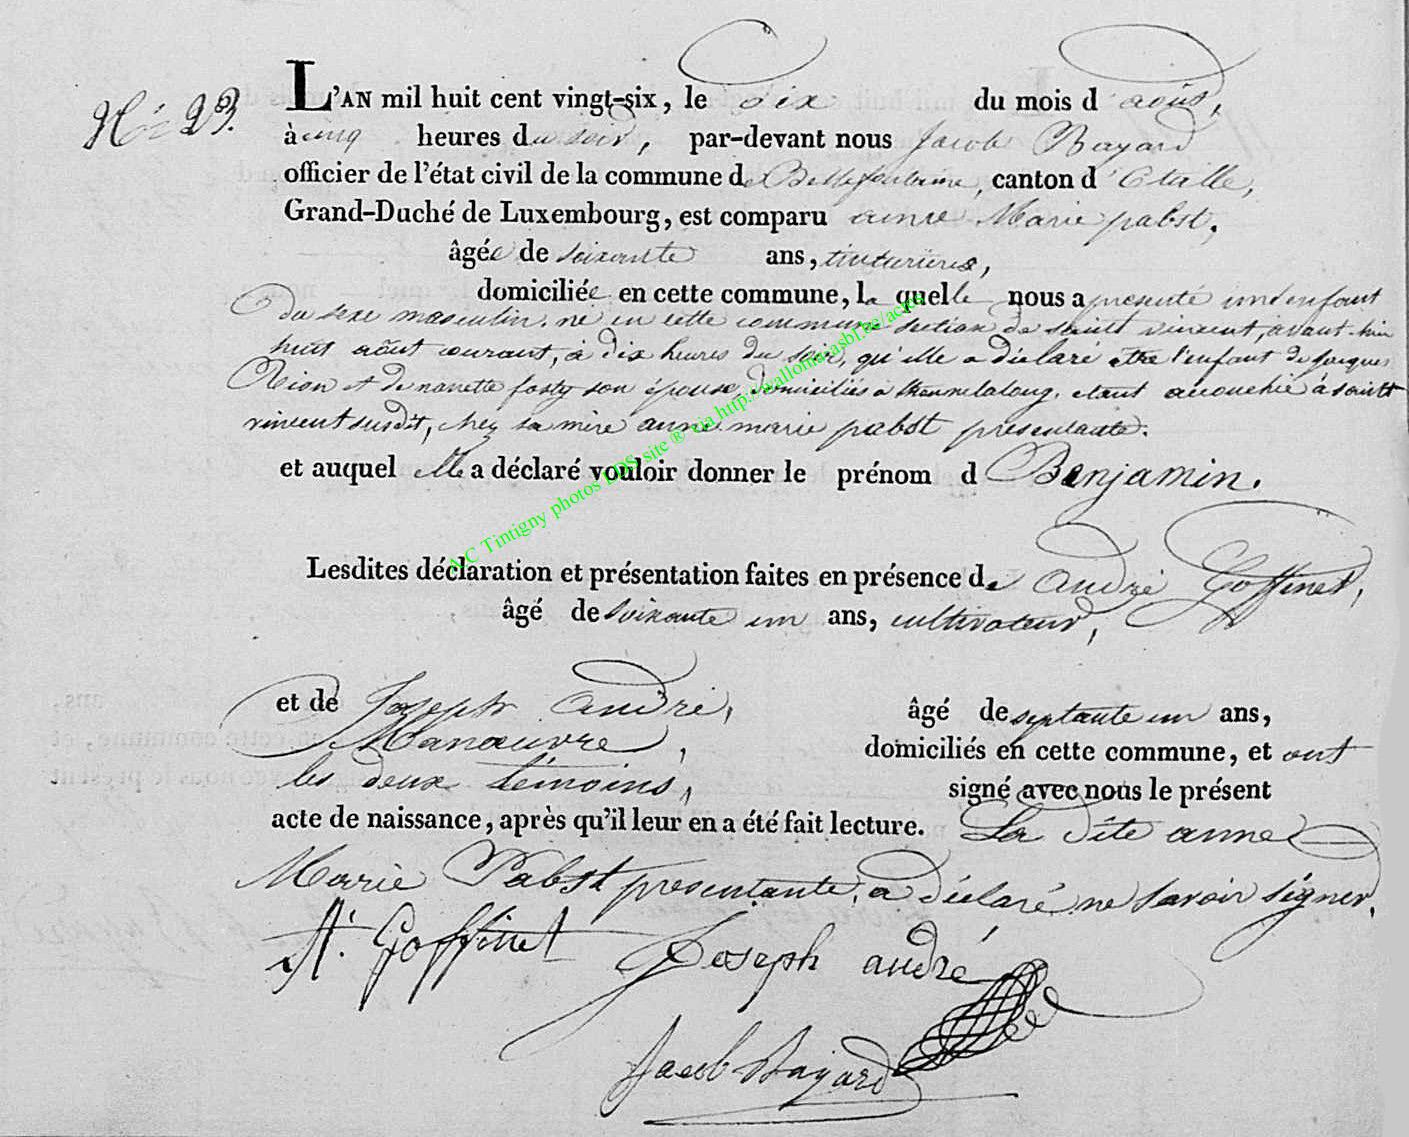 No 23.
L'AN mil huit cent vingt-six, le dix du mois d'août,
à cinq heures du soir, par-devant nous Jacob Bayard
officier de l'état civil de la commune de Bellefontaine, canton d'Etalle,
Grand-Duché de Luxembourg, est comparu anne Marie pabst,
âgée de soixante ans,
domiciliée en cette commune, la quelle nous a présenté un enfant
du sexe masculin. né en cette commune section de saint vincent, avant-hier
huit août courant, à dix heures du soir, qu'elle a déclaré être l'enfant de jacques
et de nanette son épouse, domiciliés à étant accouchée à saint
vincent susdit, chez sa mère anne marie pabst présentante.
et auquel elle a déclaré vouloir donner le prénom d Benjamin.
Lesdites déclaration et présentation faites en présence de andré Goffinet,
âgé de soixante un ans, cultivateur,
et de Joseph andré, âgé de septante un ans,
Manœuvre, domiciliés en cette commune, et ont
les deux témoins, signé avec nous le présent
acte de naissance, après qu'il leur en a été fait lecture. La dite anne
Marie Pabst présentante, a déclaré ne savoir signer.
A. Goffinet Joseph andré
Jacob Bayard
A.C Tintigny photos LDS site ® via http://wallonia.asbl.be/actes